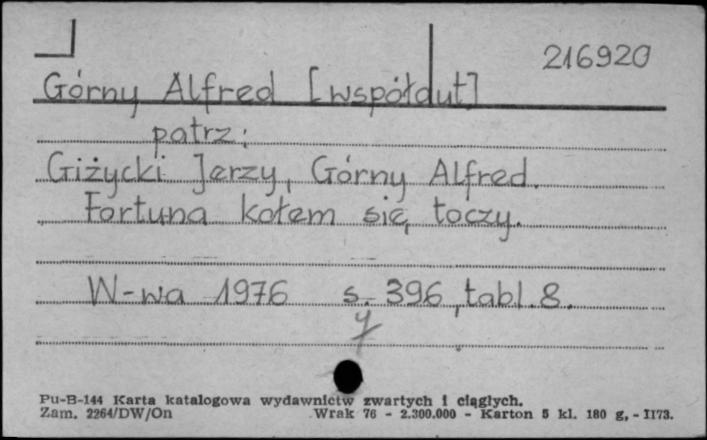 216920
Górny Alfred [współaut]
patrz:
Giżycki Jerzy, Górny Alfred.
Fortuna kołem się toczy.
W-wa 1976 s. 396, tabl. 8.
Pu-B-144 Karta katalogowa wydawnictw zwartych i ciągłych.
Zam. 2264/DW/On Wrak 76 - 2.300.000 - Karton 5 kl. 180 g, - II73.